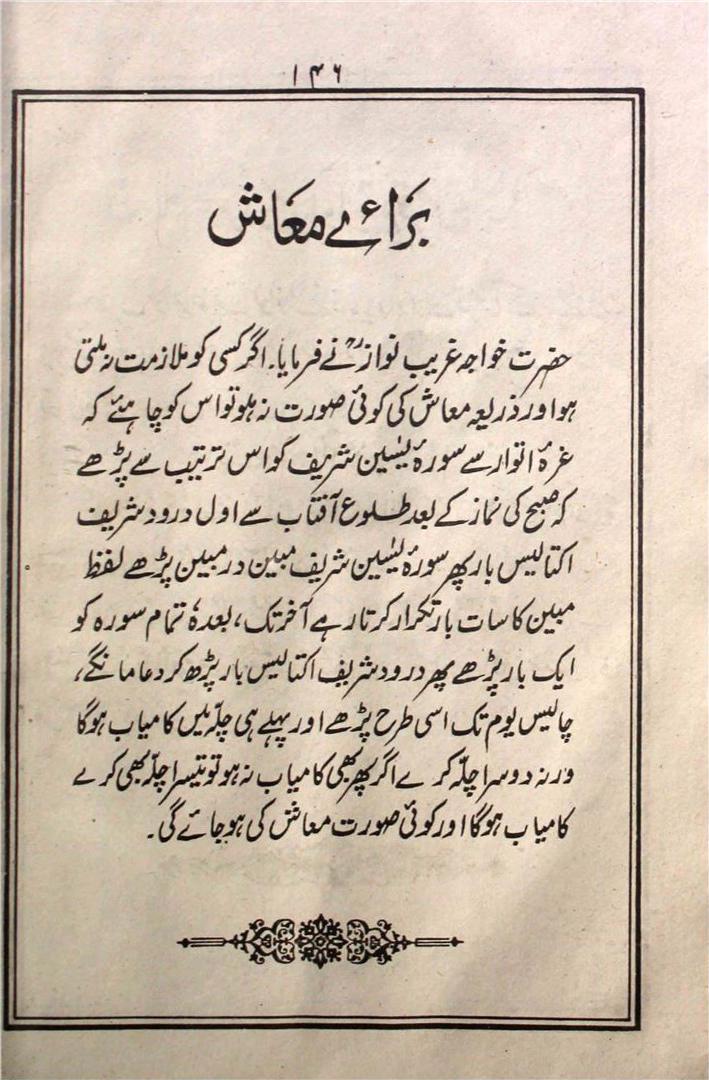 ۱۴۶
برائے معاش
حضرت خواجہ غریب نوازؒ نے فرمایا۔ اگر کسی کو ملازمت نہ ملتی
ہو اور ذریعہ معاش کی کوئی صورت نہ ہو تو اس کو چاہئے کہ
غرۂ اتوار سے سورۂ یٰسین شریف کو اس ترتیب سے پڑھے
کہ صبح کی نماز کے بعد طلوع آفتاب سے اول درود شریف
اکتالیس بار پھر سورۂ یٰسین شریف مبین در مبین پڑھے لفظ
مبین کا سات بار تکرار کرتا رہے آخر تک، بعدہٗ تمام سورہ کو
ایک بار پڑھے پھر درود شریف اکتالیس بار پڑھ کر دعا مانگے،
چالیس یوم تک اسی طرح پڑھے اور پہلے ہی چلّہ میں کامیاب ہوگا
ورنہ دوسرا چلّہ کرے اگر پھر بھی کامیاب نہ ہو تو تیسرا چلّہ بھی کرے
کامیاب ہوگا اور کوئی صورت معاش کی ہو جائے گی۔